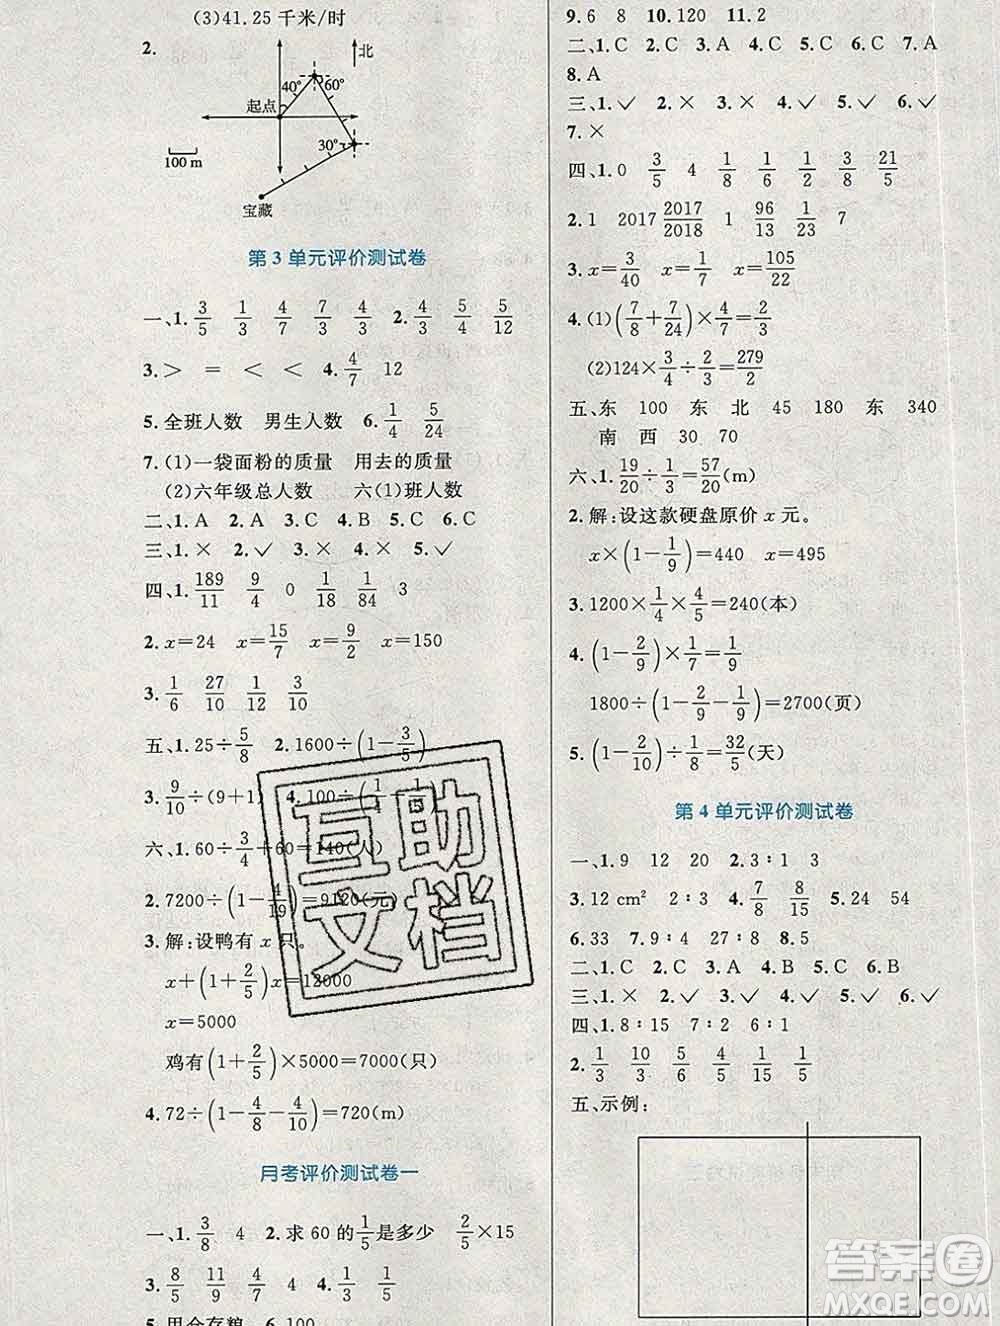 (3)41.25 千米/时
2.
北
40°
60°
起点
30°
100 m
宝藏
第 3 单元评价测试卷
一、1. 3/5 1/3 4/7 7/3 4/3 2. 4/3 5/4 5/12
3. > = < < 4. 4/7 12
5. 全班人数 男生人数 6. 1/4 5/24
7. (1)一袋面粉的质量 用去的质量
(2)六年级总人数 六(1)班人数
二、1. A 2. A 3. C 4. B 5. C 6. C
三、1. × 2. ✓ 3. ✓ 4. ✓ 5. ✓
四、1. 189/11 9/4 0 1/18 1/84 3
2. x=24 x=15/7 x=9/2 x=150
3. 1/6 27/10 1/12 3/10
五、1. 25÷5/8 2. 1600÷(1-3/5)
3. 9/10÷(9+1) 4. 100÷
六、1. 60÷3/4+60=140(人)
2. 7200÷(1-4/19)=9120(元)
3. 解:设鸭有 x 只。
x+(1+2/5)x=12000
x=5000
鸡有(1+2/5)×5000=7000(只)
4. 72÷(1-4/8-4/10)=720(m)
月考评价测试卷一
一、1. 3/8 4 2. 求 60 的1/5是多少 2/5×15
3. 8/5 11/9 4/7 4 4. 1/3 1/4
6. 100
9. 6 8 10. 120 11. 2
二、1. C 2. C 3. A 4. C 5. C 6. C 7. A
8. A
三、1. ✓ 2. × 3. × 4. ✓ 5. ✓ 6. ✓
7. ×
四、1. 0 3/5 4 1/8 1/6 1/2 3/8 21/5
2. 1 2017 2017/2018 1 96/13 1/23 7
3. x=3/40 x=1/7 x=105/22
4. (1)(7/8+7/24)×4/7=2/3
(2)124×3/4÷2/3=279/2
五、东 100 东 北 45 180 东 340
南 西 30 70
六、1. 19/20÷1/3=57/20(m)
2. 解:设这款硬盘原价 x 元。
x×(1-1/9)=440 x=495
3. 1200×1/4×4/5=240(本)
4. (1-2/9)×1/7=1/9
1800÷(1-2/9-1/9)=2700(页)
5. (1-2/10)÷1/8=32/5(天)
第 4 单元评价测试卷
一、1. 9 12 20 2. 3∶1 3
3. 12 cm² 4. 7/8 8/15 5. 24 54
6. 33 7. 9∶4 27∶8 8. 5
二、1. C 2. C 3. A 4. C 5. C 6. B
三、1. × 2. ✓ 3. ✓ 4. ✓ 5. ✓ 6. ✓
四、1. 8∶15 7∶2 6∶1
2. 1/3 10/3 5/6 4/5 1/3 4/5
五、示例:
互助
文档
答案圈
MXQE.COM